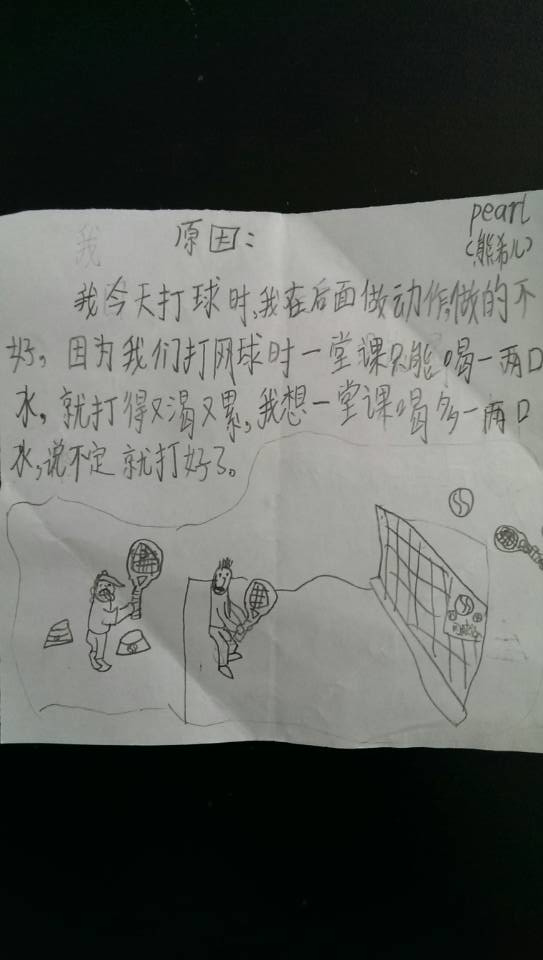 pearl
原因：
(熊希儿)
我今天打球时,我在后面做动作,做的不
好，因为我们打网球时一堂课只能喝一两口
水，就打得又渴又累,我想一堂课喝多一两口
水,说不定就打好了。